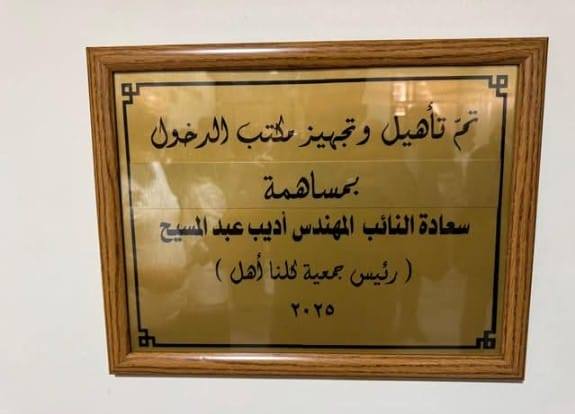 تمّ تأهيل وتجهيز مكتب الدخول
بمساهمة
سعادة النائب المهندس أديب عبد المسيح
( رئيس جمعية كلنا أهل )
٢٠٢٥